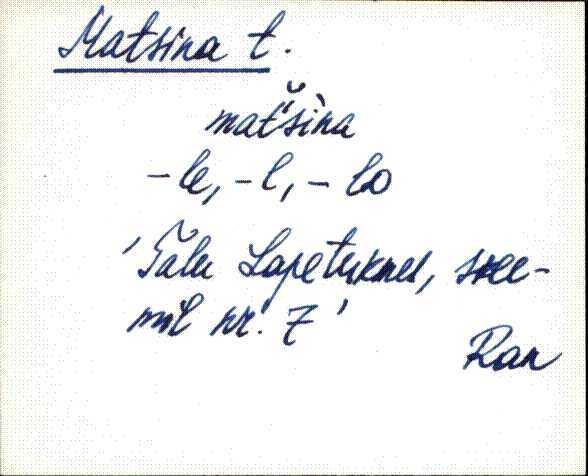 Matsina t.
matšina
-le, -l, -lo
'Talu Lapetukmel, skee-
mil nr. 7'
Ran